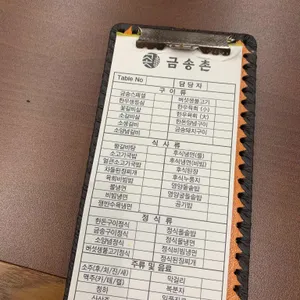 금송촌
Table No 담당자
구이류
금송스페셜 버섯생불고기
한우생등심 한우육회 (小)
꽃갈비살 한우육회 (大)
소갈비살 한돈양념구이
소생갈비 금송돼지구이
소양념갈비
식사류
왕갈비탕 후식냉면(물)
소고기국밥 후식냉면(비빔)
얼큰소고기국밥 후식된장
차돌된장찌개 후식누룽지
육회비빔밥 영양돌솥밥
물냉면 영양굴솥밥
비빔냉면 공기밥
갱반수육냉면
정식류
한돈구이정식 정식돌솥밥
금송구이정식 정식굴솥밥
소양념정식 정식물냉면
버섯생불고기정식 정식비빔냉면
정식된장찌개
주류 및 음료
소주(후/처/진/새) 막걸리
맥주(카/테/켈) 복분자
청하